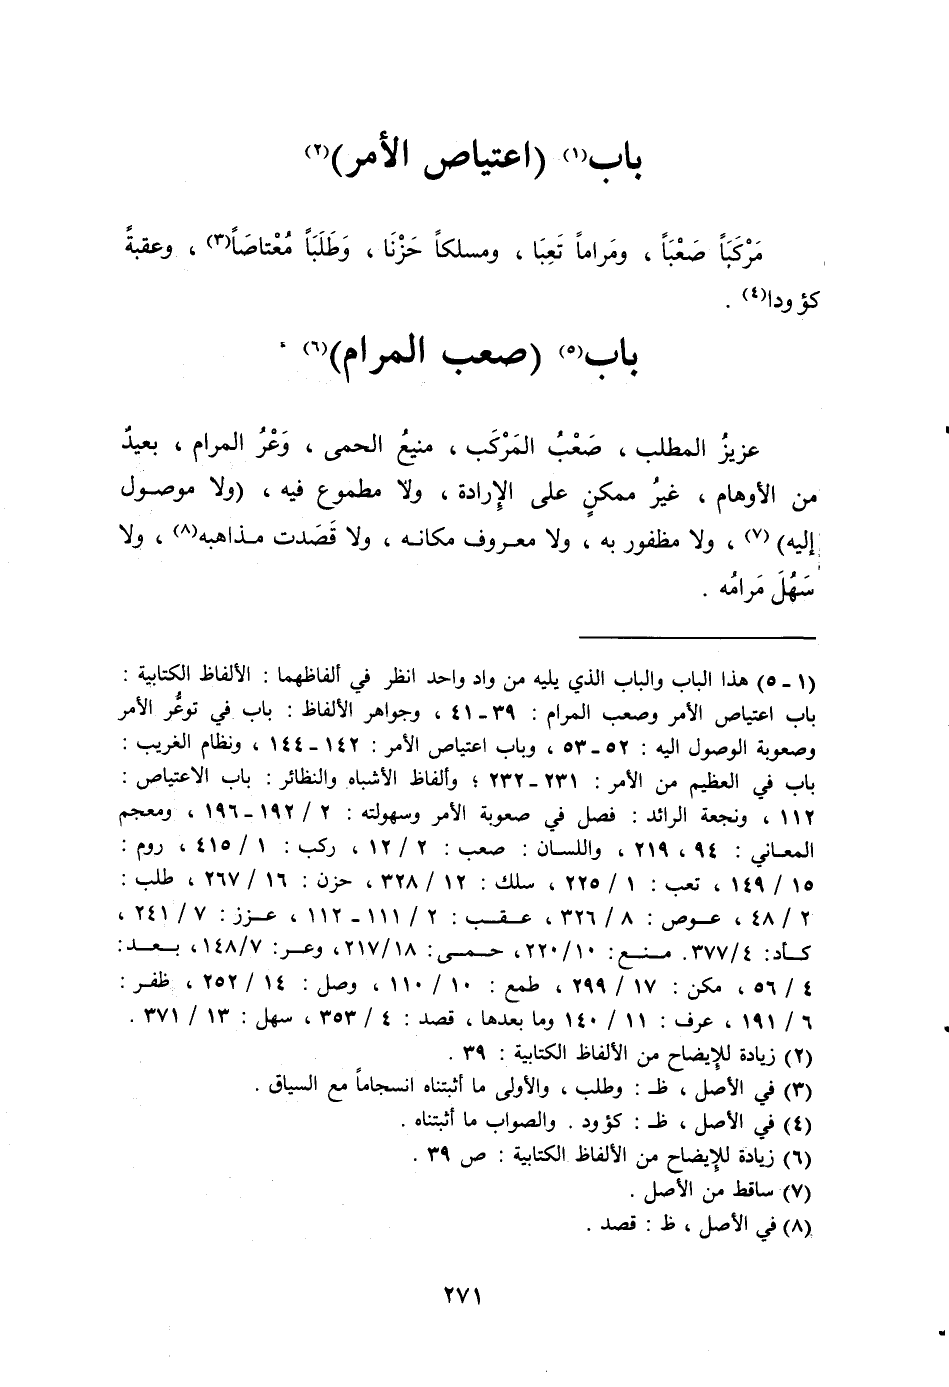 باب(١) (اعتياص الأمر)(٢)
مَرْكَبَاً صَعْبَاً ، ومَراماً تَعِبَا ، ومسلكاً حَزْنَا ، وَطَلَبَاً مُعْتاصَاً(٣) ، وعقبةً
كؤودا(٤) .
باب(٥) (صعب المرام)(٦)
عزيزُ المطلب ، صَعْبُ المَرْكَب ، منيعُ الحمى ، وَعْرُ المرام ، بعيدٌ
من الأوهام ، غيرُ ممكنٍ على الإرادة ، ولا مطموع فيه ، (ولا موصول
إليه) (٧) ، ولا مظفور به ، ولا معروف مكانه ، ولا قَصَدت مذاهبه(٨) ، ولا
سَهُلَ مَرامُه .
(١ - ٥) هذا الباب والباب الذي يليه من واد واحد انظر في ألفاظهما : الألفاظ الكتابية :
باب اعتياص الأمر وصعب المرام : ٣٩ - ٤١ ، وجواهر الألفاظ : باب في توعُّر الأمر
وصعوبة الوصول اليه : ٥٢ - ٥٣ ، وباب اعتياص الأمر : ١٤٢ - ١٤٤ ، ونظام الغريب :
باب في العظيم من الأمر : ٢٣١ - ٢٣٢ ؛ وألفاظ الأشباه والنظائر : باب الاعتياص :
١١٢ ، ونجعة الرائد : فصل في صعوبة الأمر وسهولته : ٢ / ١٩٢ - ١٩٦ ، ومعجم
المعاني : ٩٤ ، ٢١٩ ، واللسان : صعب : ٢ / ١٢ ، ركب : ١ / ٤١٥ ، روم :
١٥ / ١٤٩ ، تعب : ١ / ٢٢٥ ، سلك : ١٢ / ٣٢٨ ، حزن : ١٦ / ٢٦٧ ، طلب :
٢ / ٤٨ ، عوص : ٨ / ٣٢٦ ، عقب : ٢ / ١١١ - ١١٢ ، عزز : ٧ / ٢٤١ ،
كأد: ٤ / ٣٧٧. منع: ١٠ / ٢٢٠، حمى: ١٨ / ٢١٧، وعر: ٧ / ١٤٨، بعد:
٤ / ٥٦ ، مكن : ١٧ / ٢٩٩ ، طمع : ١٠ / ١١٠ ، وصل : ١٤ / ٢٥٢ ، ظفر :
٦ / ١٩١ ، عرف : ١١ / ١٤٠ وما بعدها ، قصد : ٤ / ٣٥٣ ، سهل : ١٣ / ٣٧١ .
(٢) زيادة للإيضاح من الألفاظ الكتابية : ٣٩ .
(٣) في الأصل ، ظـ : وطلب ، والأولى ما أثبتناه انسجاماً مع السياق .
(٤) في الأصل ، ظـ : كؤود . والصواب ما أثبتناه .
(٦) زيادة للإيضاح من الألفاظ الكتابية : ص ٣٩ .
(٧) ساقط من الأصل .
(٨) في الأصل ، ظ : قصد .
٢٧١